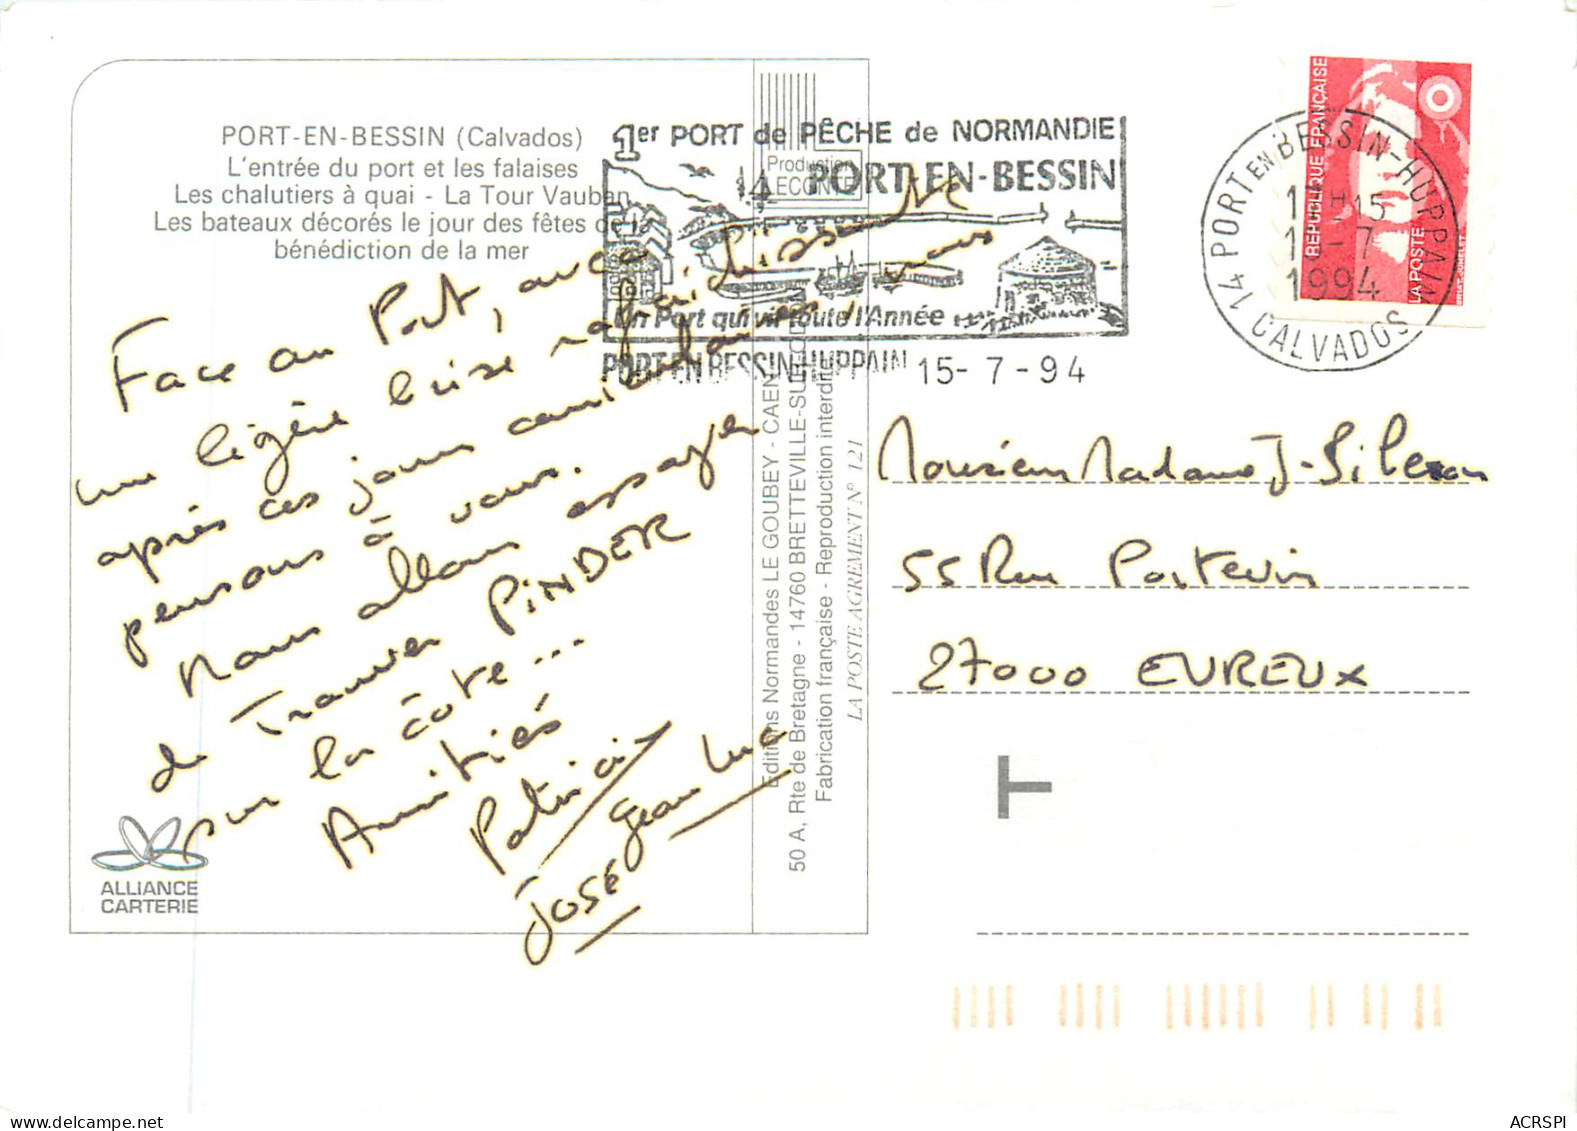 PORT-EN-BESSIN (Calvados)
L'entrée du port et les falaises
Les chalutiers à quai - La Tour Vauban
Les bateaux décorés le jour des fêtes de la
bénédiction de la mer
Face au Port, avec
une légère brise rafraichissante
après ces jours caniculaires, nous
pensons à vous.
Nous allons essayer
de trouver PiNDER
sur la côte...
Amitiés
Patricia
Jean Luc
José
ALLIANCE
CARTERIE
Production
LECONTE
Editions Normandes LE GOUBEY - CAEN
50 A, Rte de Bretagne - 14760 BRETTEVILLE-SUR-ODON
Fabrication française - Reproduction interdite
LA POSTE AGREMENT N° 121
1er PORT de PÊCHE de NORMANDIE
PORT-EN-BESSIN
Un Port qui vit toute l'Année
PORT EN BESSIN HUPPAIN 15-7-94
RÉPUBLIQUE FRANÇAISE
LA POSTE
14 PORT EN BESSIN-HUPPAIN
15-7
1994
CALVADOS
Monsieur Madame J-
55 Rue Postevin
27000 EVREUX
T
ACRSPI